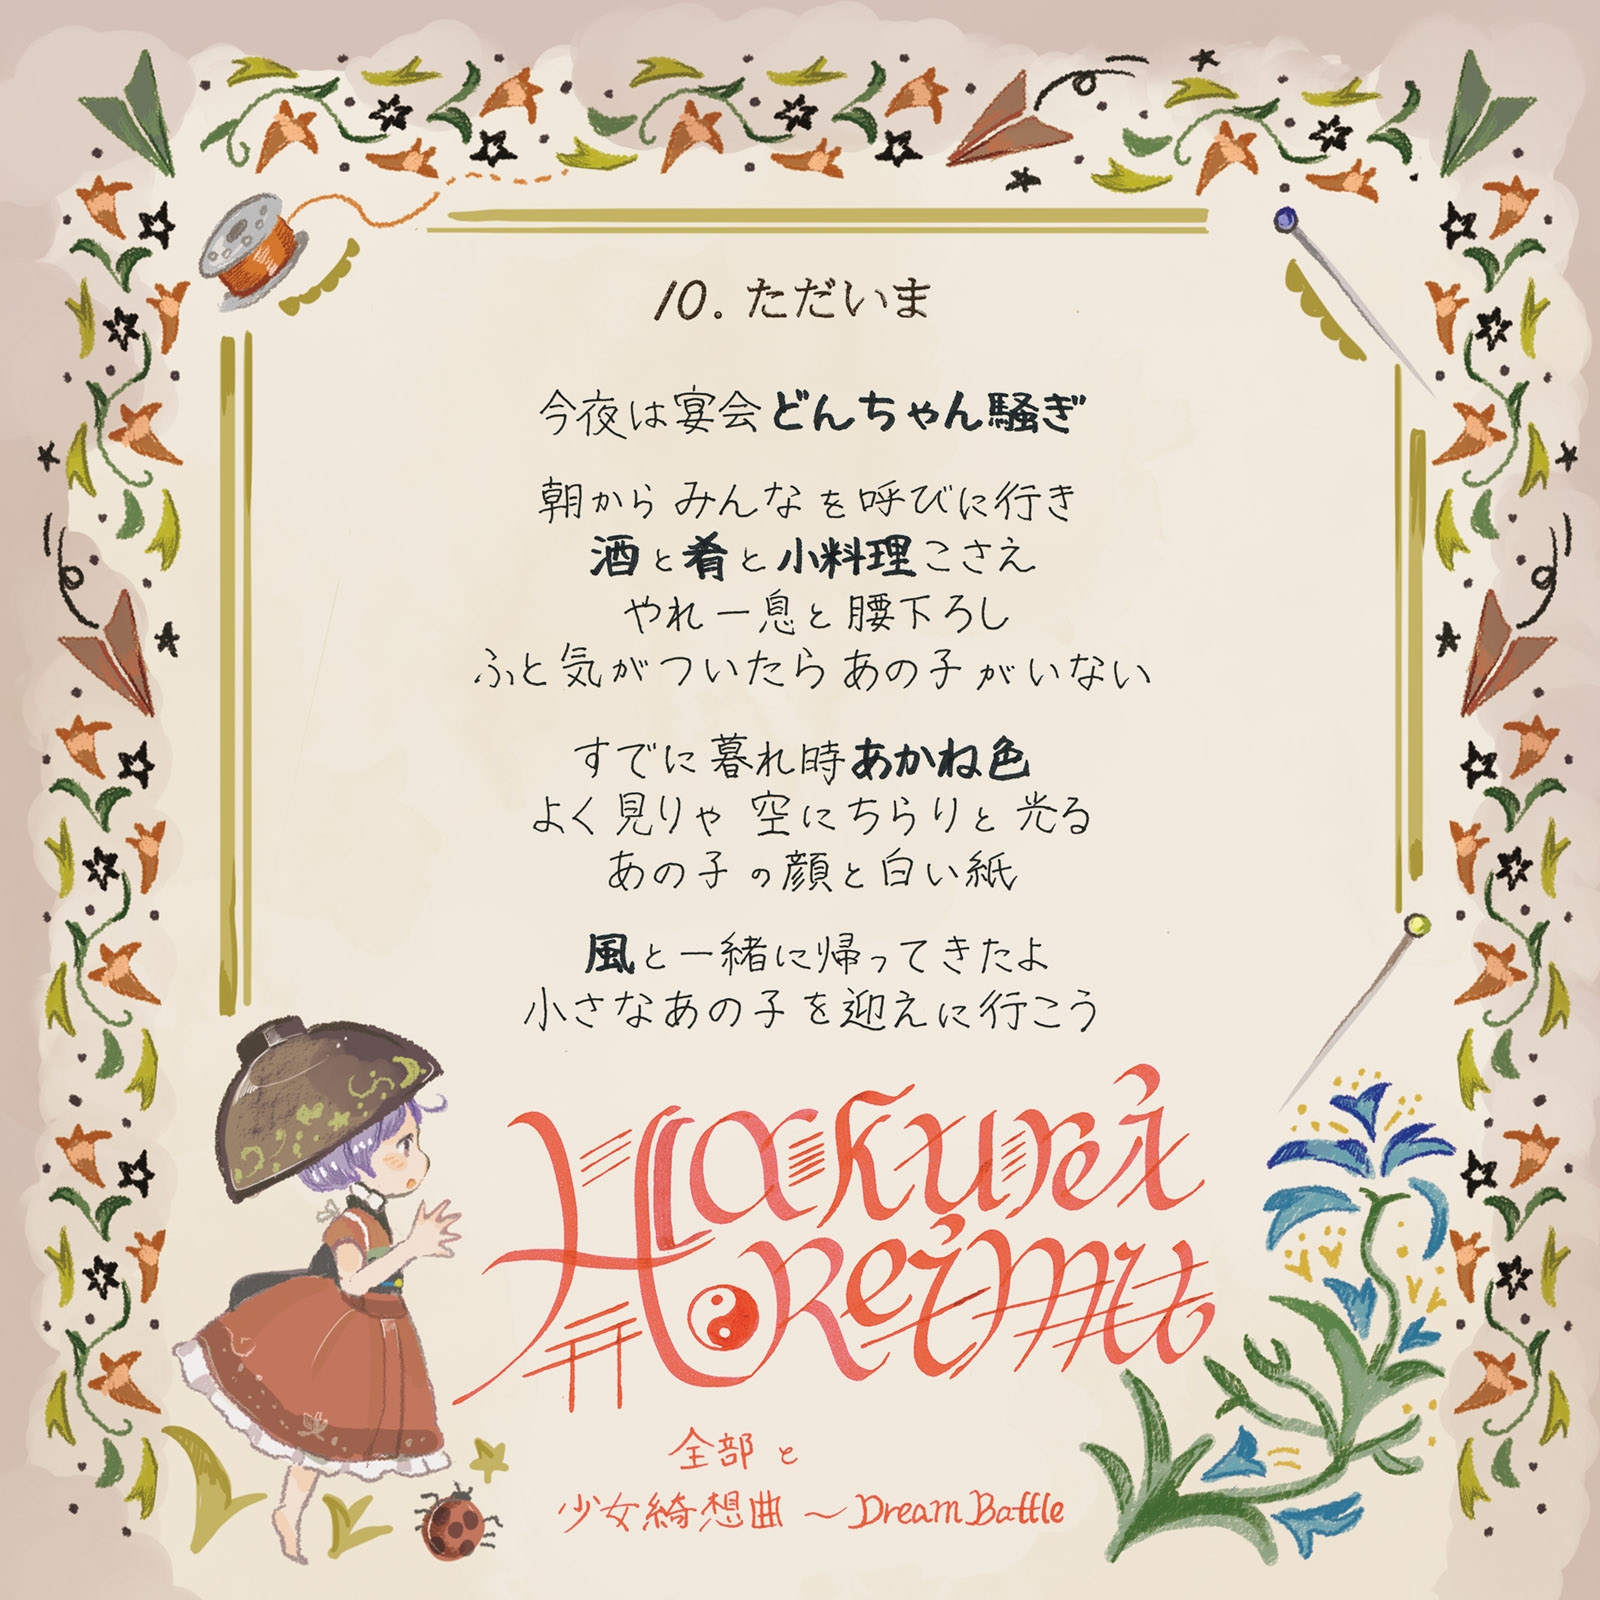 10. ただいま
今夜は宴会どんちゃん騒ぎ
朝からみんなを呼びに行き
酒と肴と小料理こさえ
やれ一息と腰下ろし
ふと気がついたらあの子がいない
すでに暮れ時あかね色
よく見りゃ 空にちらりと光る
あの子の顔と白い紙
風と一緒に帰ってきたよ
小さなあの子を迎えに行こう
Hakurei
Reimu
全部と
少女綺想曲 ～Dream Battle